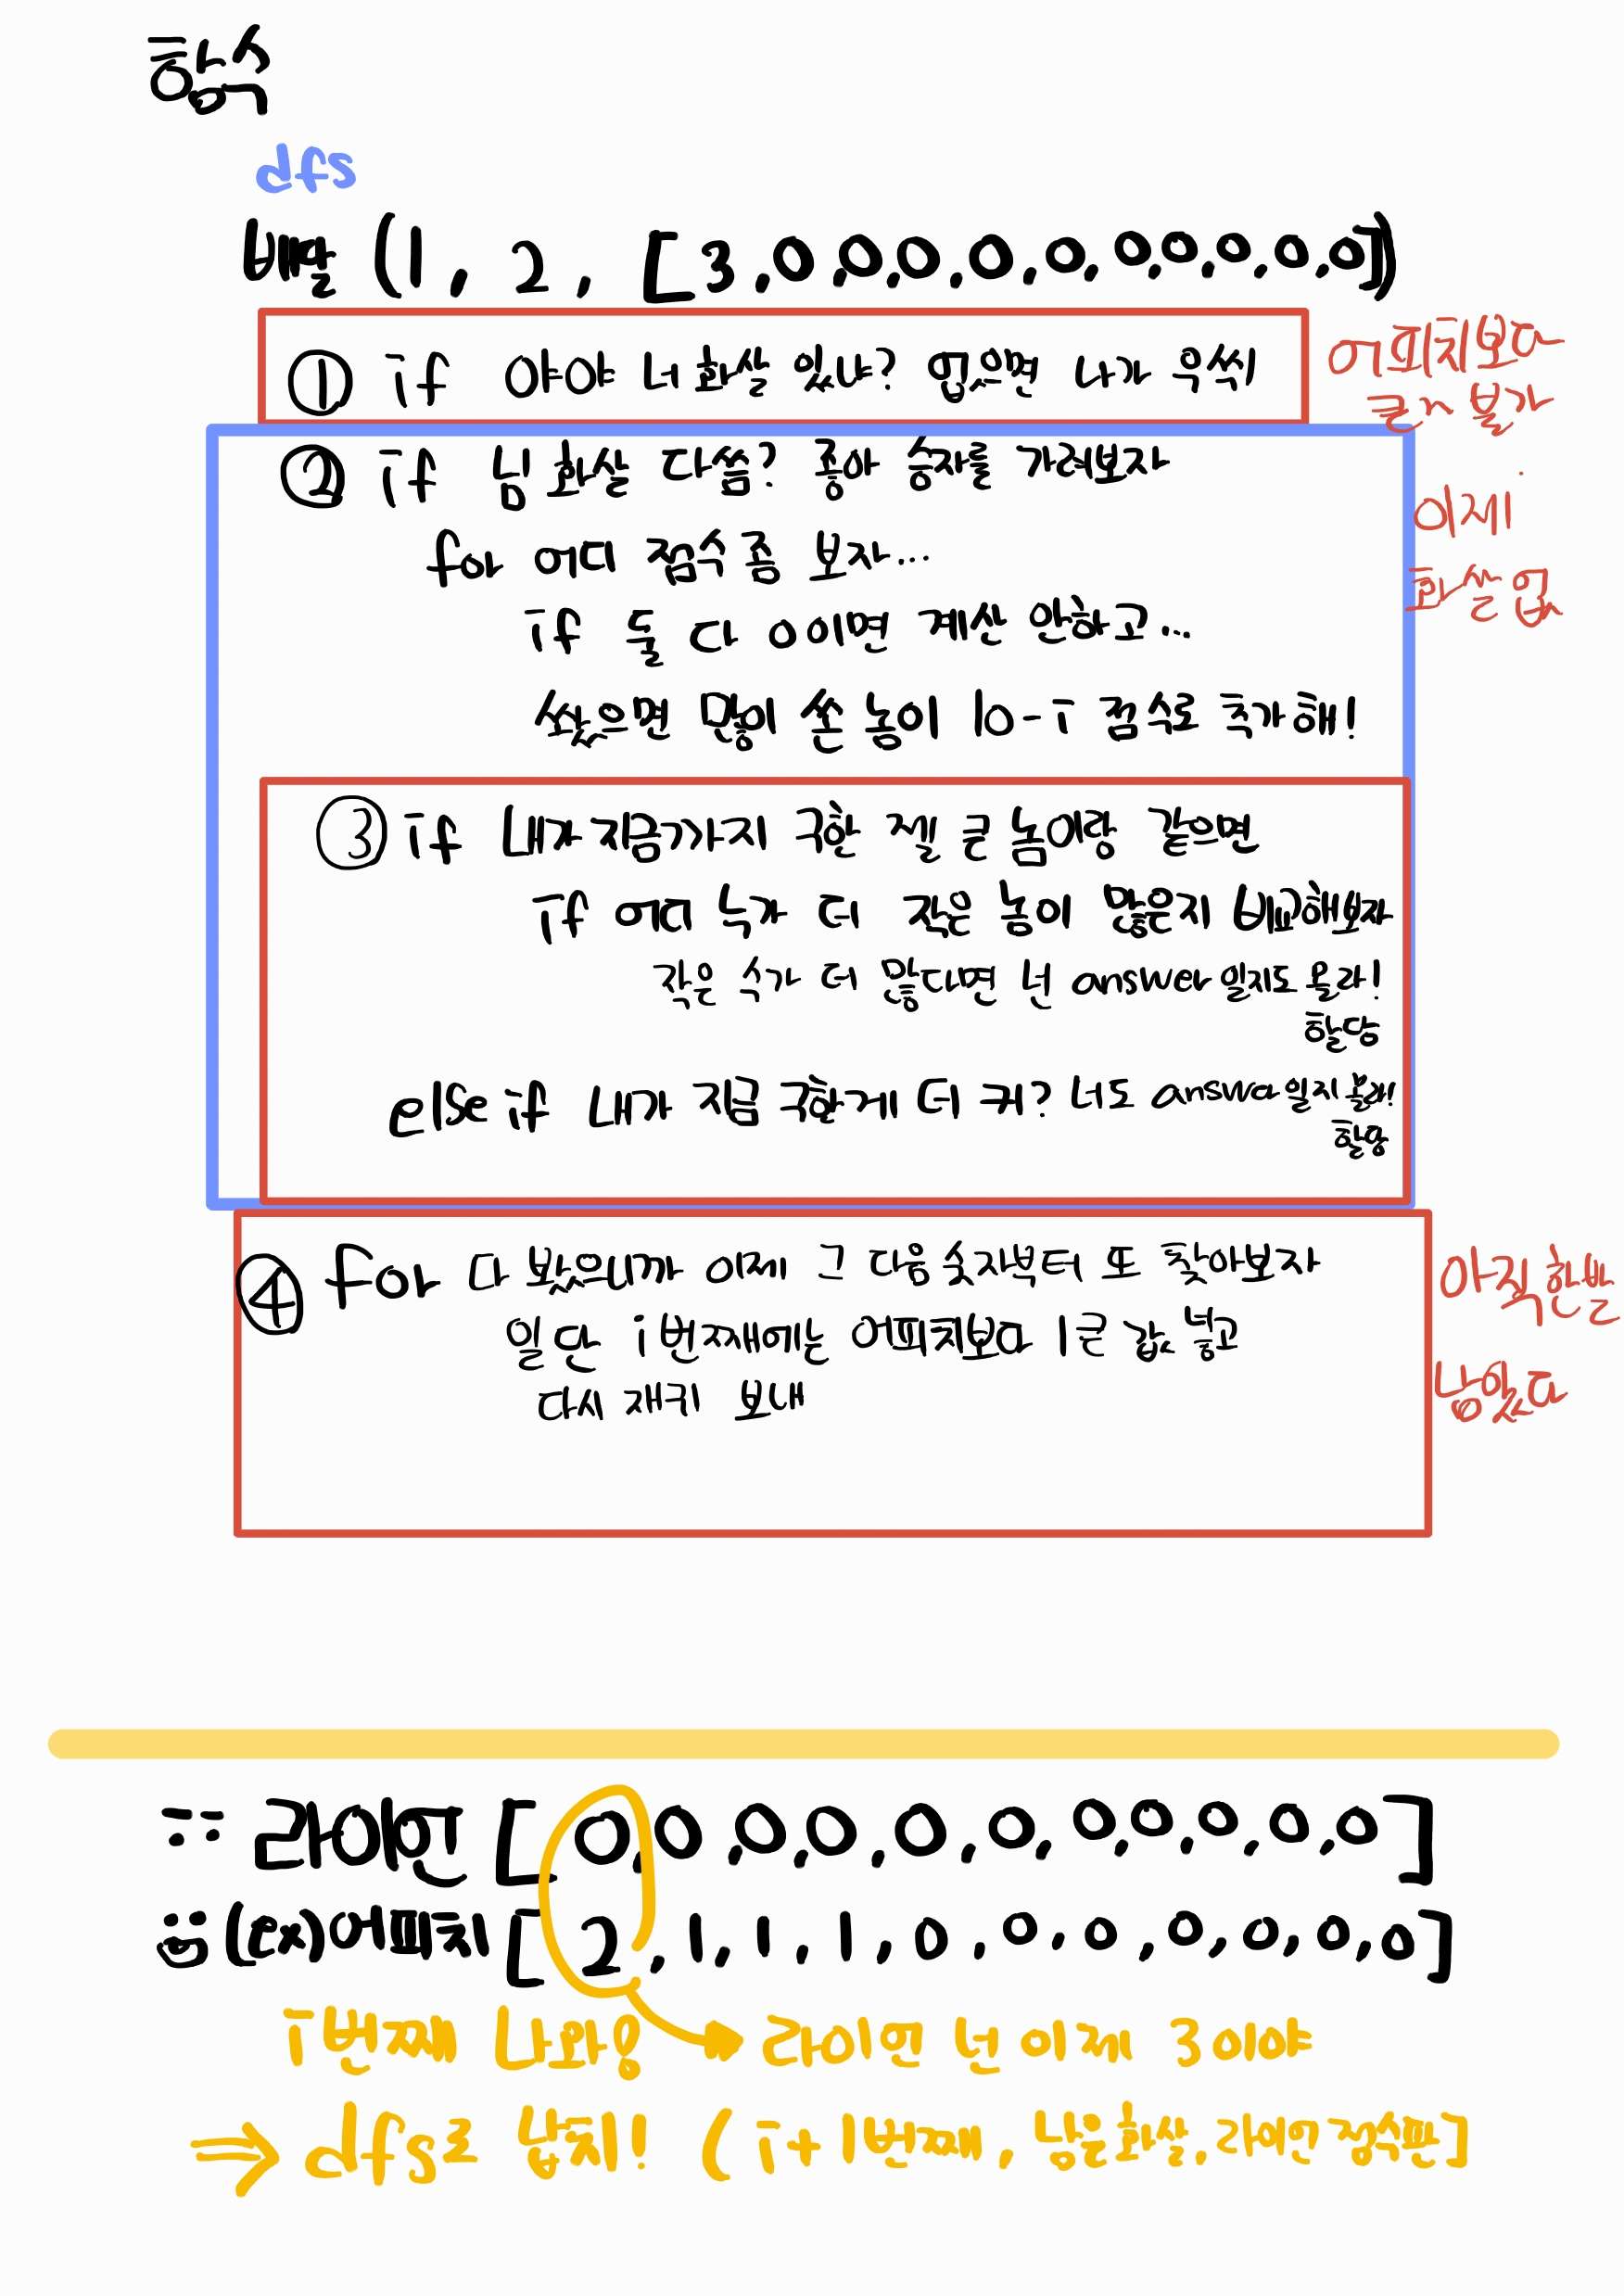 함수
dfs
배열 (1, 2, [3,0,0,0,0,0,0,0,0,0,0])
① if 야야 너 화살 있냐? 없으면 나가 우씨!
어피치보다
클 수 불가
② if 님 화살 다씀? 좋아 승자를 가려보자
이제
화살 없
for 어디 점수 좀 보자...
if 둘 다 0이면 계산 안하고...
쐈으면 많이 쏜 놈이 10-i 점수로 추가해!
③ if 내가 지금까지 구한 젤 큰 놈이랑 같으면
if 어디 누가 더 작은 놈이 많은지 비교해보자
작은 수가 더 많다면 넌 answer 일지도 몰라!
할당
else if 내가 지금 구한게 더 커? 너도 answer 일지 몰라!
할당
④ for 다 봤으니까 이제 그 다음 숫자부터 또 찾아보자
아직 한발
남았다
일단 i번째에는 어피치보다 1 큰 값 넣고
다시 재귀 보내
라이언 [0,0,0,0,0,0,0,0,0,0,0]
(ex)어피치 [2,1,1,1,0,0,0,0,0,0,0]
i번째 나와! → 라이언 넌 이제 3이야
⇒ dfs로 납치! (i+1번째, 남은 화살, 라이언 점수판]